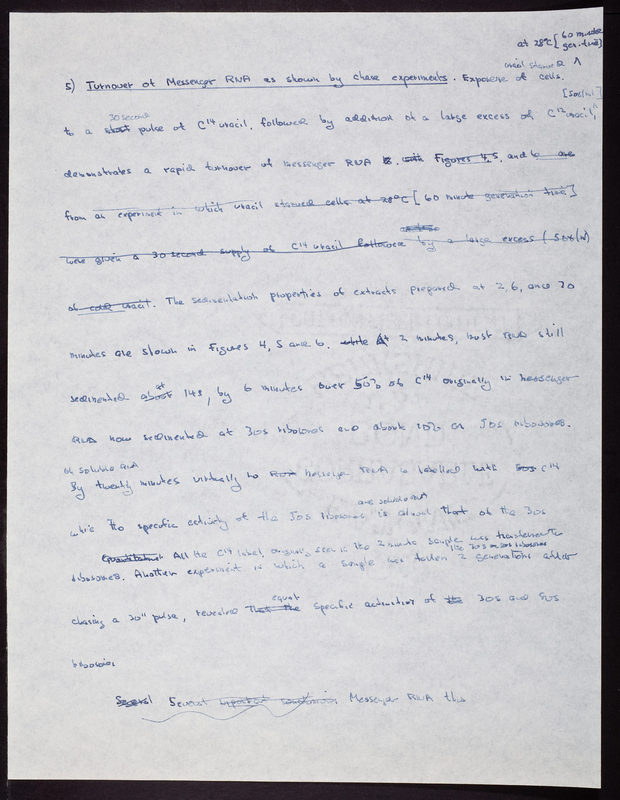 at 28°C [60 minute
gen. time]
uracil starved ^
5) Turnover of Messenger RNA as shown by chase experiments. Exposure of cells
[500/ml]
30 second
to a short pulse of C14 uracil, followed by addition of a large excess of C12 uracil,
demonstrates a rapid turnover of messenger RNA. with Figures 4, 5, and 6 are
from an experiment in which uracil starved cells at 28°C [60 minute generation time]
were given a 30 second supply of C14 uracil followed by a large excess
of cold uracil. The sedimentation properties of extracts prepared at 2, 6, and 20
minutes are shown in Figures 4, 5 and 6. while At 2 minutes, most RNA still
at
sedimented about 14s, by 6 minutes over 50% of C14 originally in messenger
RNA now sedimented at 30s ribosomes and about 10% as 50s ribosomes.
or soluble RNA
By twenty minutes virtually no RNA messenger RNA is labelled with C14
and soluble RNA
while the specific activity of the 50s ribosomes is almost that of the 30s
Quantitative All the C14 label, originally seen in the 2 minute sample was transferred to
the 30s or 50s ribosomes
ribosomes. Another experiment in which a sample was taken 2 generations after
equal
chasing a 30" pulse, revealed that the specific activities of the 30s and 50s
ribosomes
Several Several important conclusions Messenger RNA thus